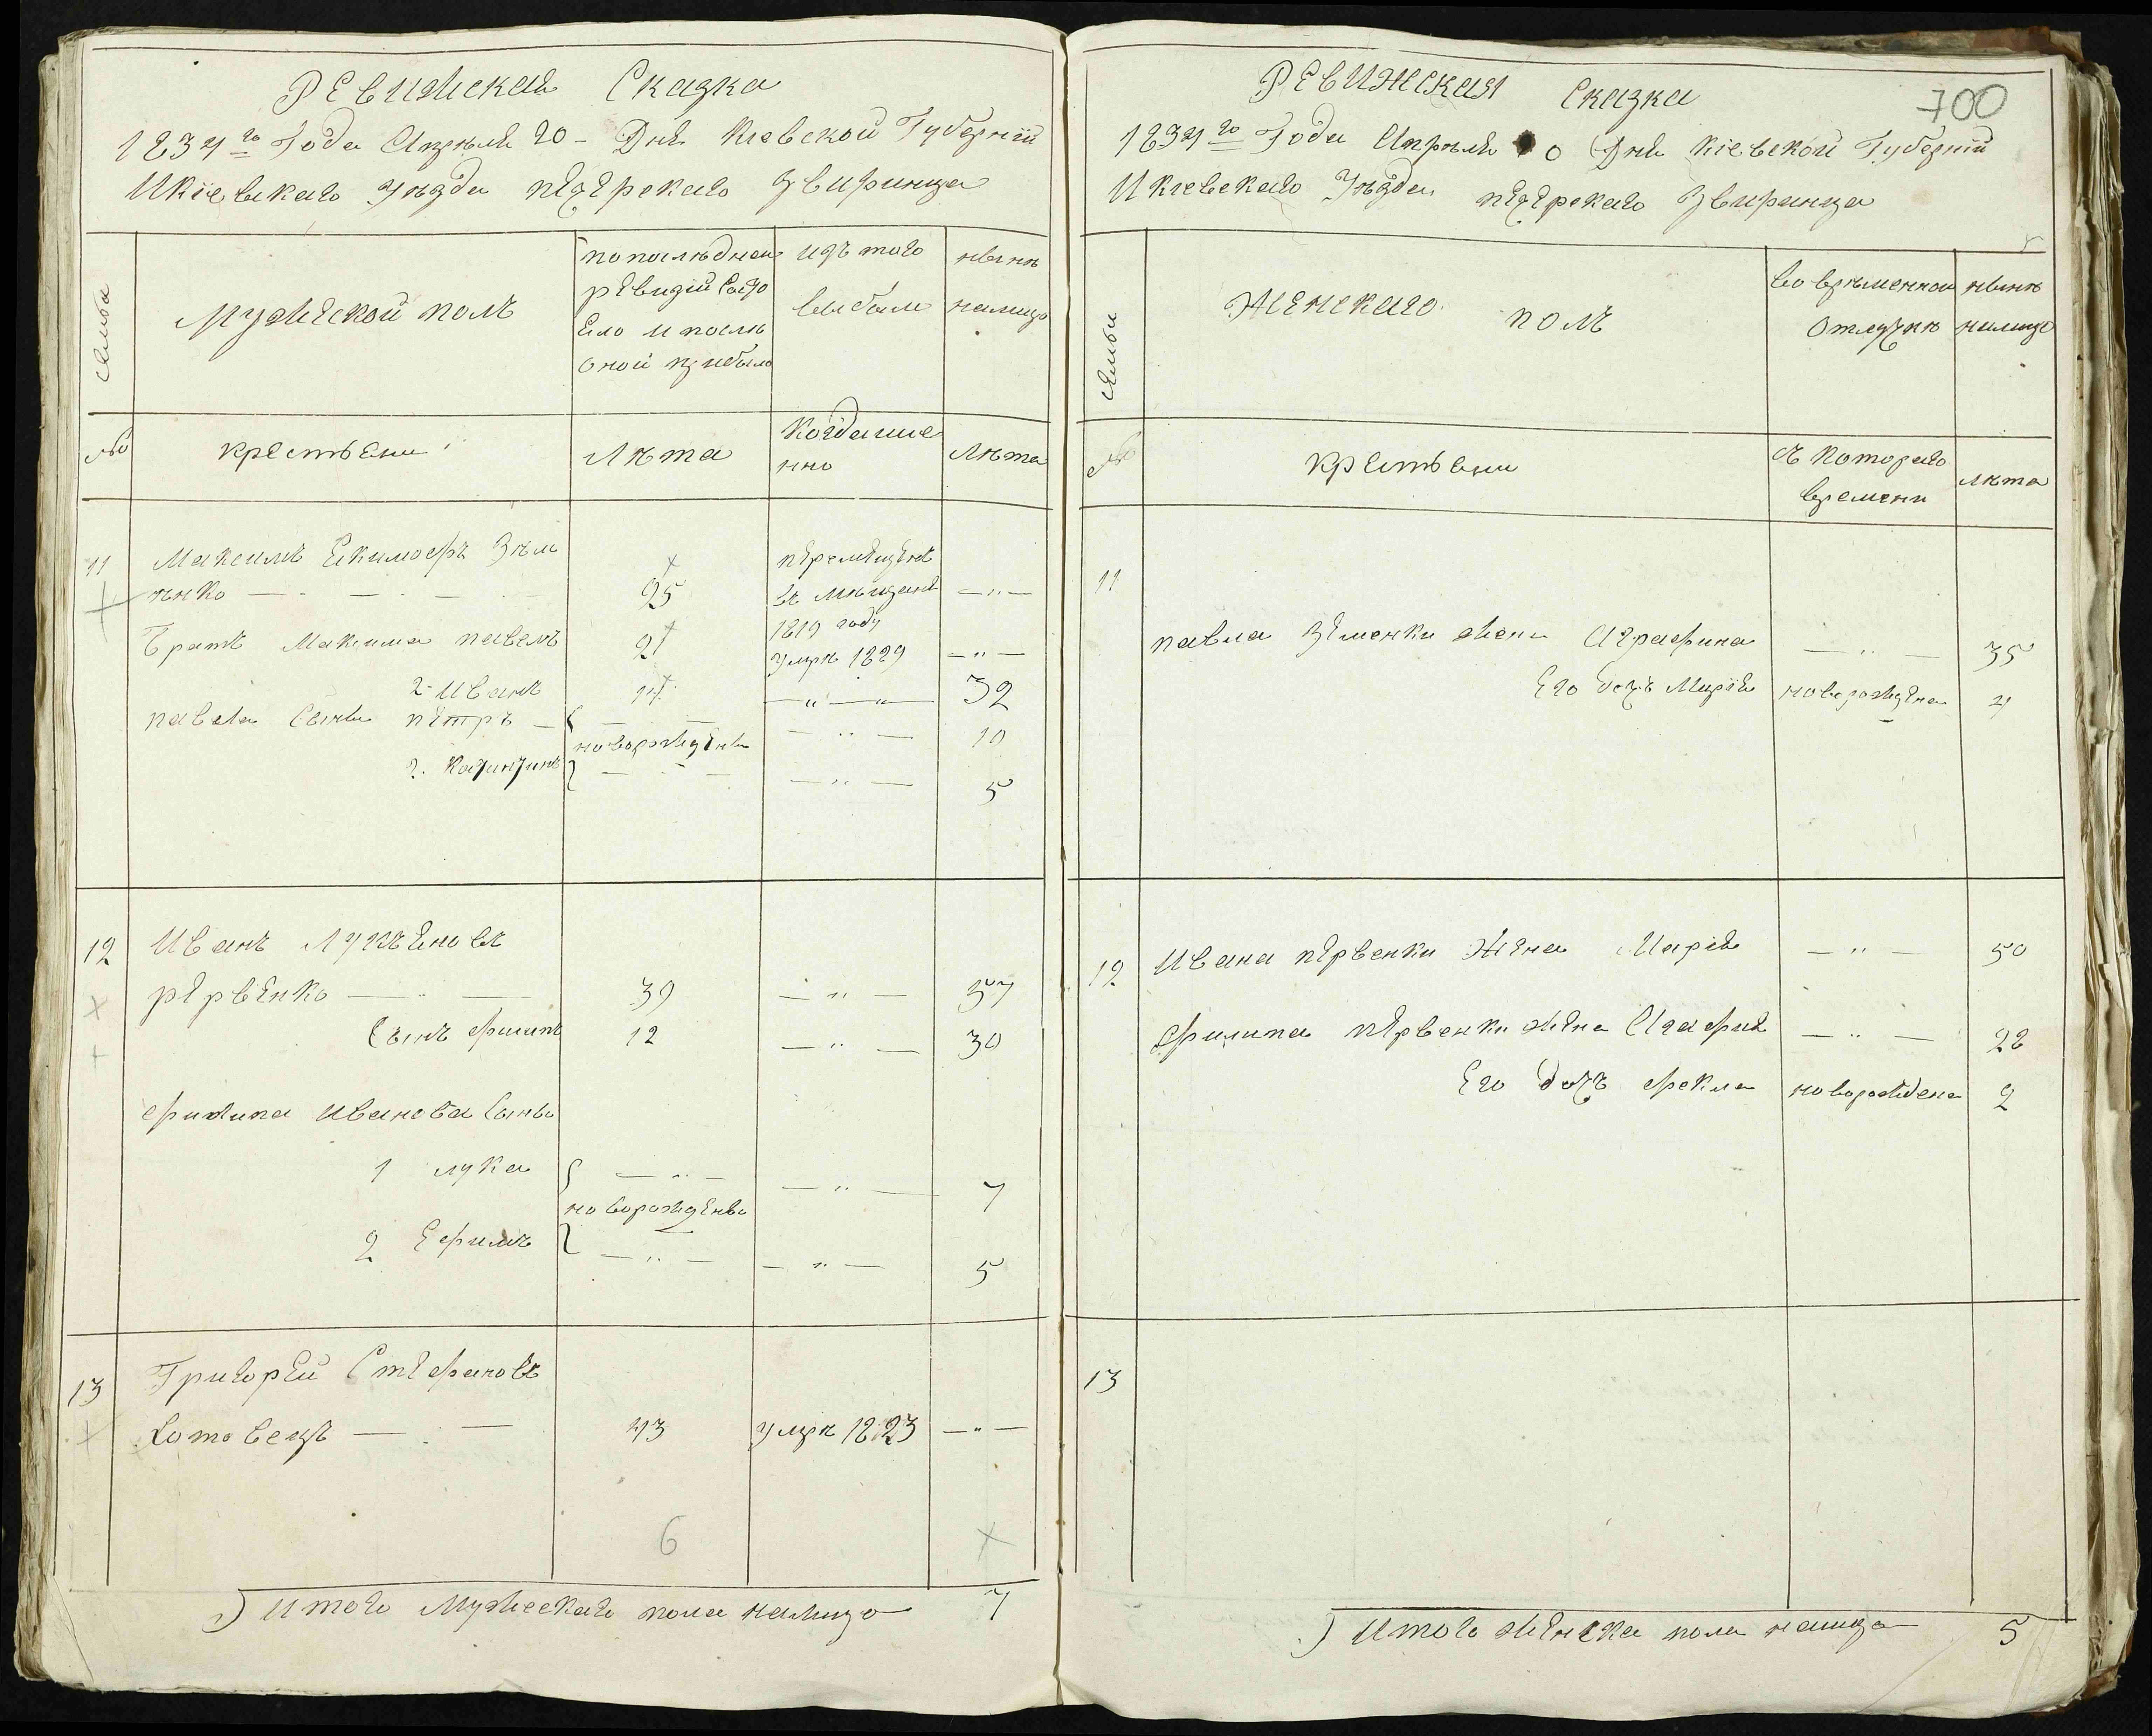 Ревижская Сказка
1834го Года Апреля 20 - Дня Киевской Губернїй
Икїевскаго Уѣзда пѣчерскаго Звиринца
семьи
Мужеской полъ
по послѣдней
ревизїи Состо
Яло и послѣ
оной прибыло
изъ того
выбыли
нынѣ
налицо
№
крестьяни
Лѣта
Когда име
нно
Лѣта
11
Максимъ Екимофъ Зѣм
ѣнко
25
перемещенъ
въ мещане
1819 году
—"—
братъ Максима павелъ
21
умре 1829
—"—
2-Иванъ
14
—"—
32
павела Сыны петръ
новорожденъ
—"—
10
2.
—"—
5
12
Иванъ Лукьяновъ
рервенко
39
—"—
57
Сынъ филипъ
12
—"—
30
филипа иванова Сыны
1 лука
—"—
—"—
7
новорожденъ
2 Ефимъ
—"—
—"—
5
13
Григорей Стефановъ
Котовецъ
43
умре 1823
—"—
6
Итого Мужескаго пола налицо
7
Ревижская Сказка
700
1834го Года Апреля 0 Дня Кїевской Губернїй
Икиевскаго Уѣзда пѣчерскаго Звиринца
семьи
Женскаго полъ
во временной
Отлучкѣ
нынѣ
налицо
№
крестьяни
съ Котораго
времени
лѣта
11
павла Зѣменки жена Аграфина
—"—
35
Его дочь Марїя
новорождена
4
12
Ивана первенки Жена Марїя
—"—
50
филипа первенки жена Агафия
—"—
28
Его дочъ фекла
новорождена
2
13
Итого женска пола налицо
5